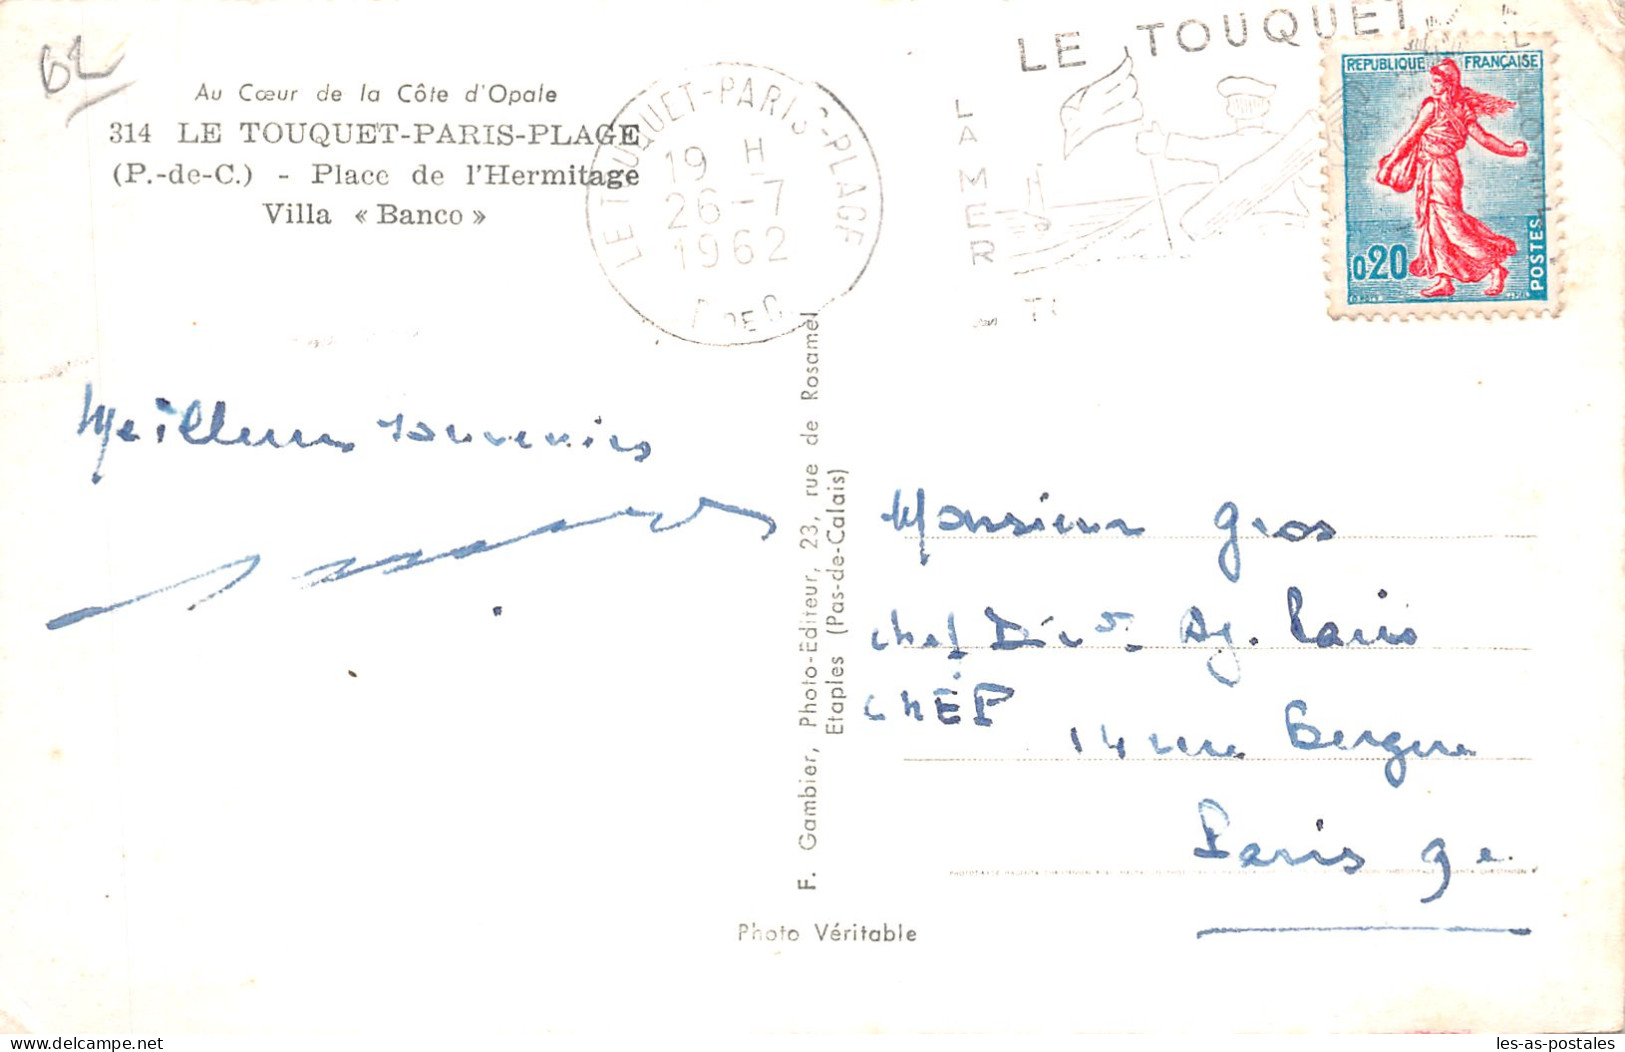 62
Au Cœur de la Côte d'Opale
314 LE TOUQUET-PARIS-PLAGE
(P.-de-C.) - Place de l'Hermitage
Villa « Banco »
LE TOUQUET-PARIS-PLAGE
19 H
26-7
1962
P. DE C.
LE TOUQUET
LA MER
REPUBLIQUE FRANÇAISE
0,20
POSTES
Meilleurs souvenirs
F. Gambier, Photo-Editeur, 23, rue de Rosamel
Etaples (Pas-de-Calais)
Monsieur Gros
chef Divon Ag. Paris
CNEP
14 rue Bergère
Paris 9e
Photo Véritable
delcampe.net
les-as-postales